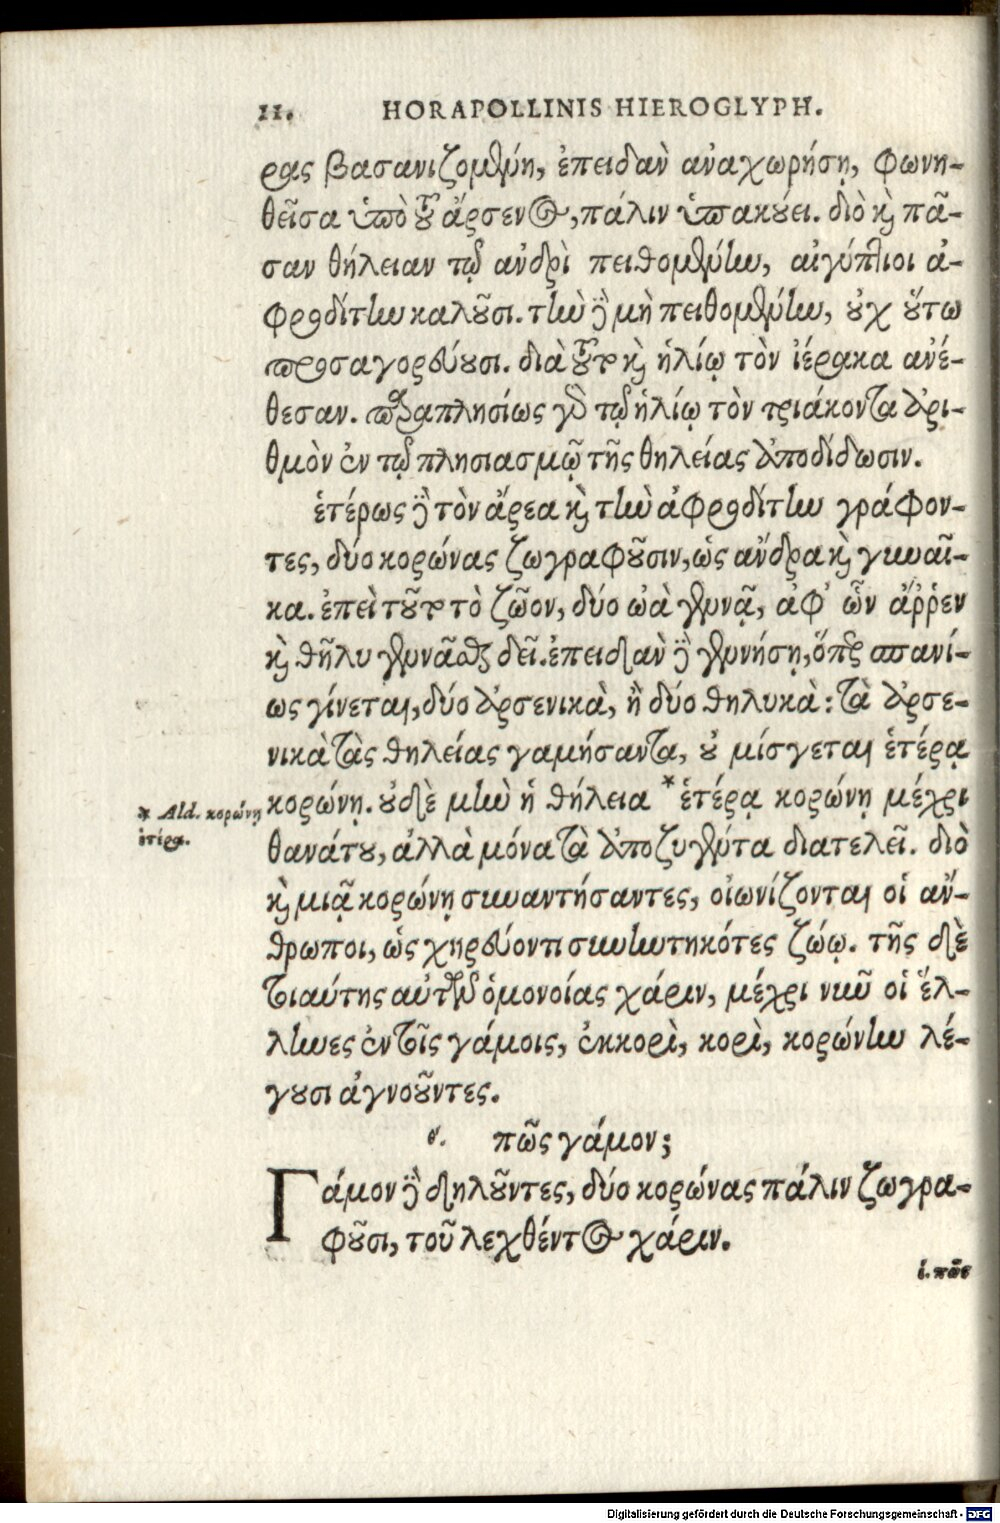 11. HORAPOLLINIS HIEROGLYPH.
ρας βασανιζομένη, ἐπειδὰν ἀναχωρήσῃ, φωνη-
θεῖσα ὑπὸ τοῦ ἄρσενος, πάλιν ὑπακούει. διὸ καὶ πᾶ-
σαν θήλειαν τῷ ἀνδρὶ πειθομένην, αἰγύπτιοι ἀ-
φροδίτην καλοῦσι. τὴν δὲ μὴ πειθομένην, οὐχ οὕτω
προσαγορεύουσι. διὰ τοῦτο καὶ ἡλίῳ τὸν ἱέρακα ἀνέ-
θεσαν. παραπλησίως γὰρ τῷ ἡλίῳ τὸν τριάκοντα ἀρι-
θμὸν ἐν τῷ πλησιασμῷ τῆς θηλείας ἀποδίδωσιν.
ἑτέρως δὲ τὸν ἄρεα καὶ τὴν ἀφροδίτην γράφον-
τες, δύο κορώνας ζωγραφοῦσιν, ὡς ἄνδρα καὶ γυναῖ-
κα. ἐπεὶ τοῦτο τὸ ζῶον, δύο ὠὰ γεννᾷ, ἀφ' ὧν ἄῤῥεν
καὶ θῆλυ γεννᾶσθαι δεῖ. ἐπειδὰν δὲ γεννήσῃ, ὅπερ σπανί-
ως γίνεται, δύο ἀρσενικὰ, ἢ δύο θηλυκὰ: τὰ ἀρσε-
νικὰ τὰς θηλείας γαμήσαντα, οὐ μίσγεται ἑτέρᾳ
κορώνῃ. οὐδὲ μὴν ἡ θήλεια * ἑτέρᾳ κορώνῃ μέχρι
* Ald. κορώνη
ἑτέρα.
θανάτου, ἀλλὰ μόνα τὰ ἀποζυγέντα διατελεῖ. διὸ
καὶ μιᾷ κορώνῃ συναντήσαντες, οἰωνίζονται οἱ ἄν-
θρωποι, ὡς χηρεύοντι συνηντηκότες ζώῳ. τῆς δὲ
τοιαύτης αὐτῶν ὁμονοίας χάριν, μέχρι νῦν οἱ ἕλ-
ληνες ἐν τοῖς γάμοις, ἐκκορὶ, κορὶ, κορώνην λέ-
γουσι ἀγνοοῦντες.
θ. πῶς γάμον;
Γάμον δὲ δηλοῦντες, δύο κορώνας πάλιν ζωγρα-
φοῦσι, τοῦ λεχθέντος χάριν.
ι. πῶς
Digitalisierung gefördert durch die Deutsche Forschungsgemeinschaft - DFG